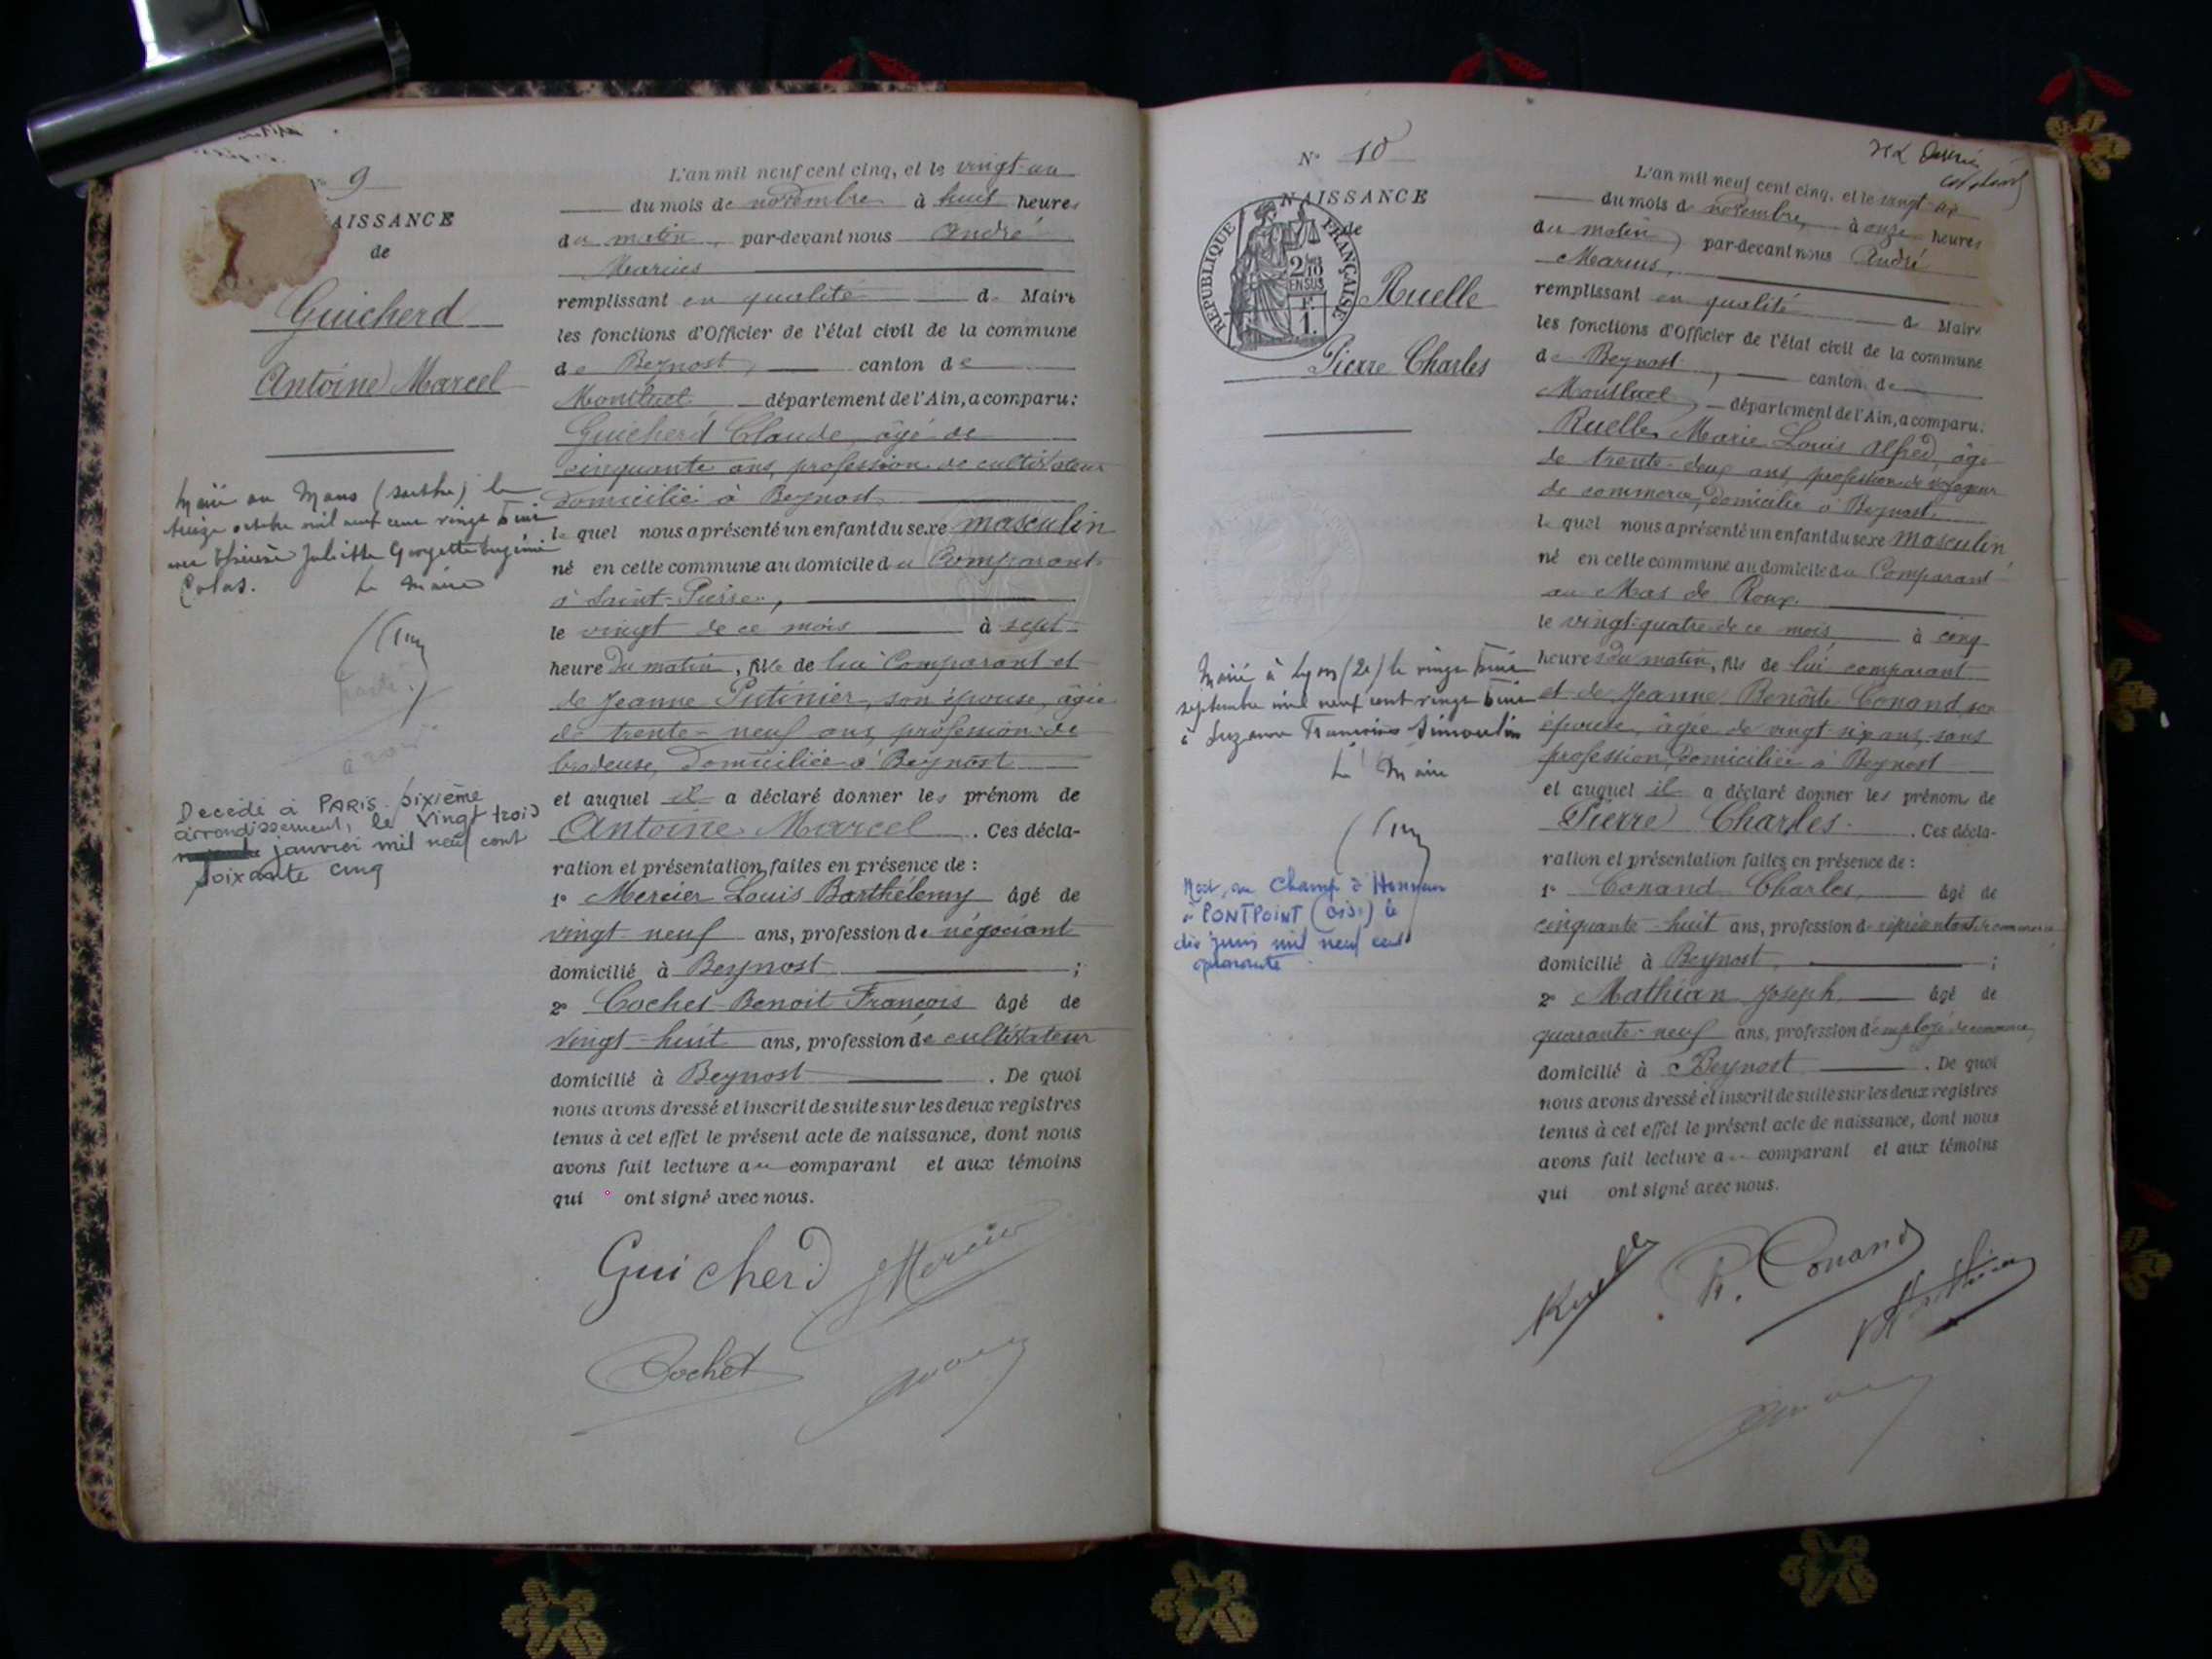 9
NAISSANCE
de
Guicherd
Antoine Marcel
Marié au Mans (Sarthe) le
treize octobre mil neuf cent vingt huit
avec Juliette Georgette Eugénie
Colas. Le Maire
Decédé à PARIS sixième
arrondissement, le vingt trois
janvier mil neuf cent
soixante cinq
L'an mil neuf cent cinq, et le vingt-un
du mois de novembre à huit heures
du matin, par-devant nous André
Marius
remplissant en qualité de Maire
les fonctions d'Officier de l'état civil de la commune
de Beynost, canton de
Montluel département de l'Ain, a comparu:
Guicherd Claude, âgé de
cinquante ans, profession de cultivateur
domicilié à Beynost
lequel nous a présenté un enfant du sexe masculin
né en cette commune au domicile du Comparant
à Saint-Pierre,
le vingt de ce mois à sept
heure du matin, fils de lui Comparant et
de Jeanne Putinier, son épouse, âgée
de trente-neuf ans, profession de
brodeuse, domiciliée à Beynost
et auquel il a déclaré donner les prénom de
Antoine Marcel. Ces décla-
ration et présentation faites en présence de :
1° Mercier Louis Barthélemy âgé de
vingt-neuf ans, profession de négociant
domicilié à Beynost ;
2° Cochet Benoit François âgé de
vingt-huit ans, profession de cultivateur
domicilié à Beynost. De quoi
nous avons dressé et inscrit de suite sur les deux registres
tenus à cet effet le présent acte de naissance, dont nous
avons fait lecture au comparant et aux témoins
qui ont signé avec nous.
Guicherd Mercier
Cochet
N° 10
NAISSANCE
de
RÉPUBLIQUE FRANÇAISE
2/10
EN SUS
F.
1.
Ruelle
Pierre Charles
Marié à Lyon (2e) le vingt huit
septembre mil neuf cent vingt huit
à Suzanne Simoulin
Le Maire
Mort au Champ d'Honneur
à PONTPOINT (Oise) le
dix juin mil neuf cent
quarante
L'an mil neuf cent cinq, et le vingt-six
du mois de novembre, à onze heures
du matin, par-devant nous André
Marius,
remplissant en qualité de Maire
les fonctions d'Officier de l'état civil de la commune
de Beynost, canton de
Montluel, département de l'Ain, a comparu:
Ruelle, Marie Louis Alfred, âgé
de trente-deux ans, profession de voyageur
de commerce, domicilié à Beynost
lequel nous a présenté un enfant du sexe masculin
né en cette commune au domicile du Comparant
au Mas de Roux.
le vingt-quatre de ce mois, à cinq
heures du matin, fils de lui comparant
et de Jeanne Benoîte Conand, son
épouse, âgée de vingt-six ans, sans
profession, domiciliée à Beynost
et auquel il a déclaré donner les prénoms de
Pierre Charles. Ces décla-
ration et présentation faites en présence de :
1° Conand Charles, âgé de
cinquante-huit ans, profession de représentant de commerce
domicilié à Beynost, ;
2° Mathian Joseph, âgé de
quarante-neuf ans, profession d'employé de commerce,
domicilié à Beynost. De quoi
nous avons dressé et inscrit de suite sur les deux registres
tenus à cet effet le présent acte de naissance, dont nous
avons fait lecture au comparant et aux témoins
qui ont signé avec nous.
Ruelle Conand Mathian